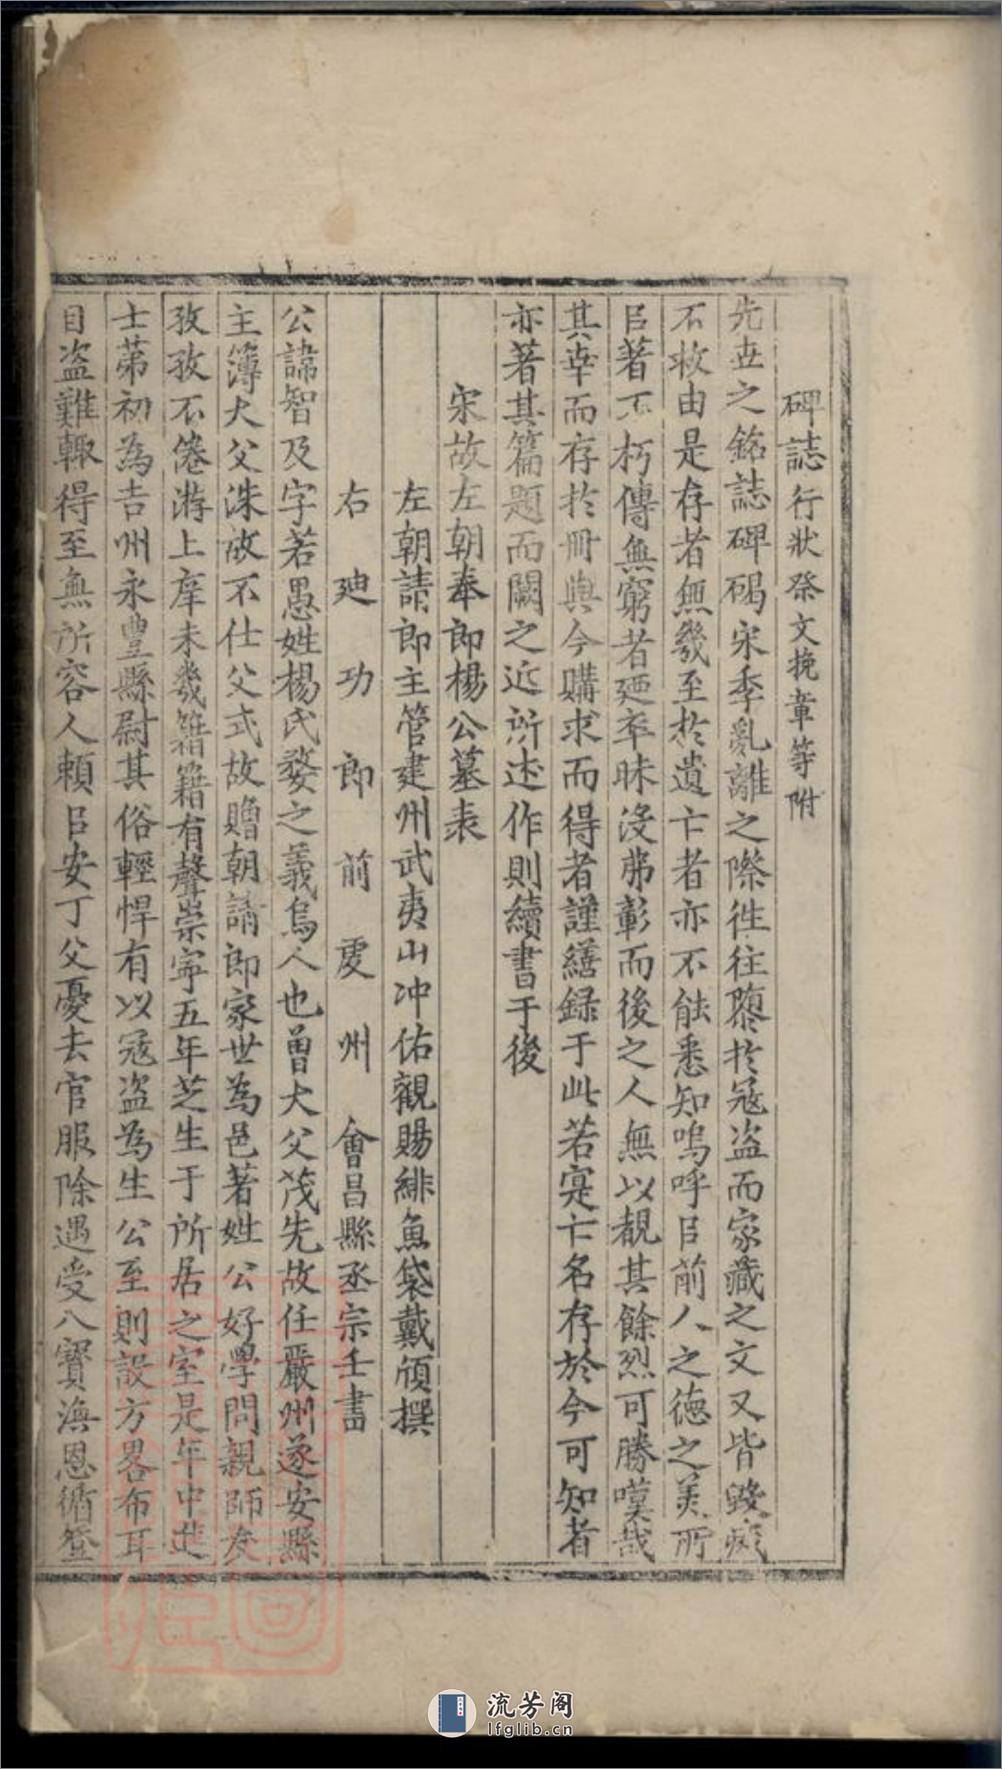 碑誌行狀祭文挽章等附
先世之銘誌碑碣宋季亂離之際徃往隳於冦盗而家藏之文又皆毀
不救由是存者無幾至扵遺亡者亦不能悉知嗚呼㠯前人之德之美所
㠯著不朽傳無窮者廼卒昧沒弗彰而後之人無以覩其餘烈可勝嘆哉
其幸而存扵冊與今購求而得者謹繕録于此若寔亡名存於今可知者
亦著其篇題而闕之近所述作則續書于後
宋故左朝奉郎楊公墓表
左朝請郎主管建州武夷山冲佑觀賜緋魚袋戴頎撰
右廸功郎前虔州會昌縣丞宗壬書
公諱智及字若愚姓楊氏婺之義烏人也曾大父茂先故任嚴州遂安縣
主簿大父洙故不仕父式故贈朝請郎家世為邑著姓公好學問親師友
孜孜不倦游上庠未幾籍籍有聲崇寧五年芝生于所居之室是年中進
士第初為吉州永豐縣尉其俗輕悍有以冦盗為生公至則設方畧布耳
目盗難輙得至無所容人頼㠯安丁父憂去官服除遇受八寶渙恩循登
流芳阁
lfglib.cn